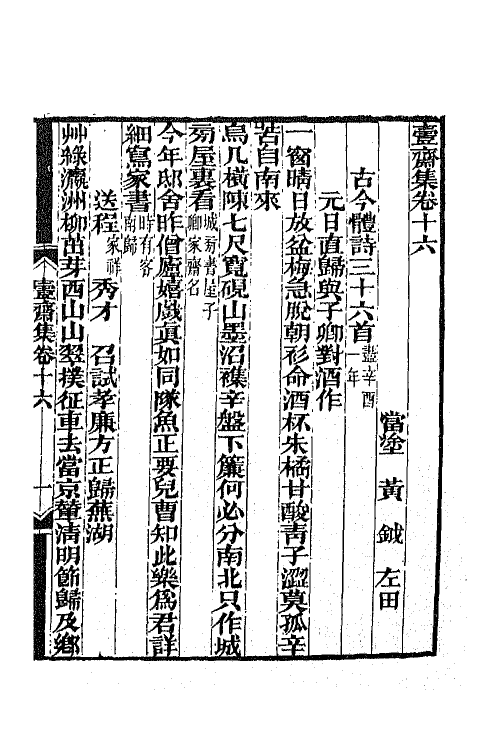 壹齋集卷十六
當塗 黃 鉞 左田
古今體詩三十六首 盡辛酉一年
元日直歸與子卿對酒作
一窗晴日放盆梅急脫朝衫命酒杯朱橘甘酸靑子澀莫孤辛
苦自南來
烏几橫陳七尺寬硯山墨沼襍辛盤下簾何必分南北只作城
南屋裏看 城南書屋子卿家齋名
今年邸舍昨僧廬嬉戲眞如同隊魚正要兒曹知此樂爲君詳
細寫家書 時有客南歸
送程 家祥 秀才 召試孝廉方正歸蕪湖
艸綠瀛洲柳茁芽西山山翠撲征車去當京輦淸明節歸及鄉
壹齋集卷十六
一